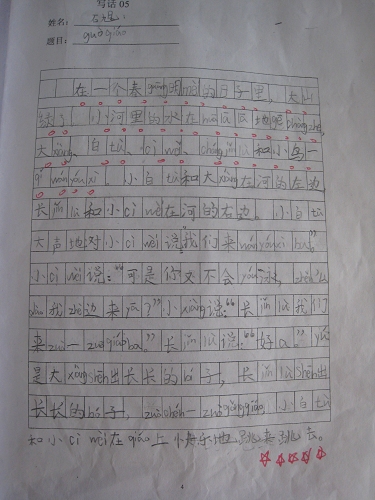 写话 05
姓名：
题目：guò qiáo
在一个春guāng明mèi的日子里，大山
绿了，小河里的水在huā huā地唱chàng zhe，
大xiàng、白tù、cì wèi、cháng jǐng lù和小鸟一
qǐ wán yóu xì。小白tù和大xiàng在河的左边，
长jǐng lù和小cì wèi在河的右边。小白tù
大声地对小cì wèi说：我们来wán yóu xì ba。”
小cì wèi说：“可是你又不会yóu泳，zěn么
dào我zhè边来ya？”小xiàng说：“长jǐng lù我们
来zuò一zuò qiáo ba。”长jǐng lù说：“好a。”yú
是大xiàng shēn出长长的bí子，长jǐng lù shēn出
长长的bó子，zuò chéng一zuò gǒng qiáo，小白tù
和小cì wèi在qiáo上快乐地跳来跳去。
4